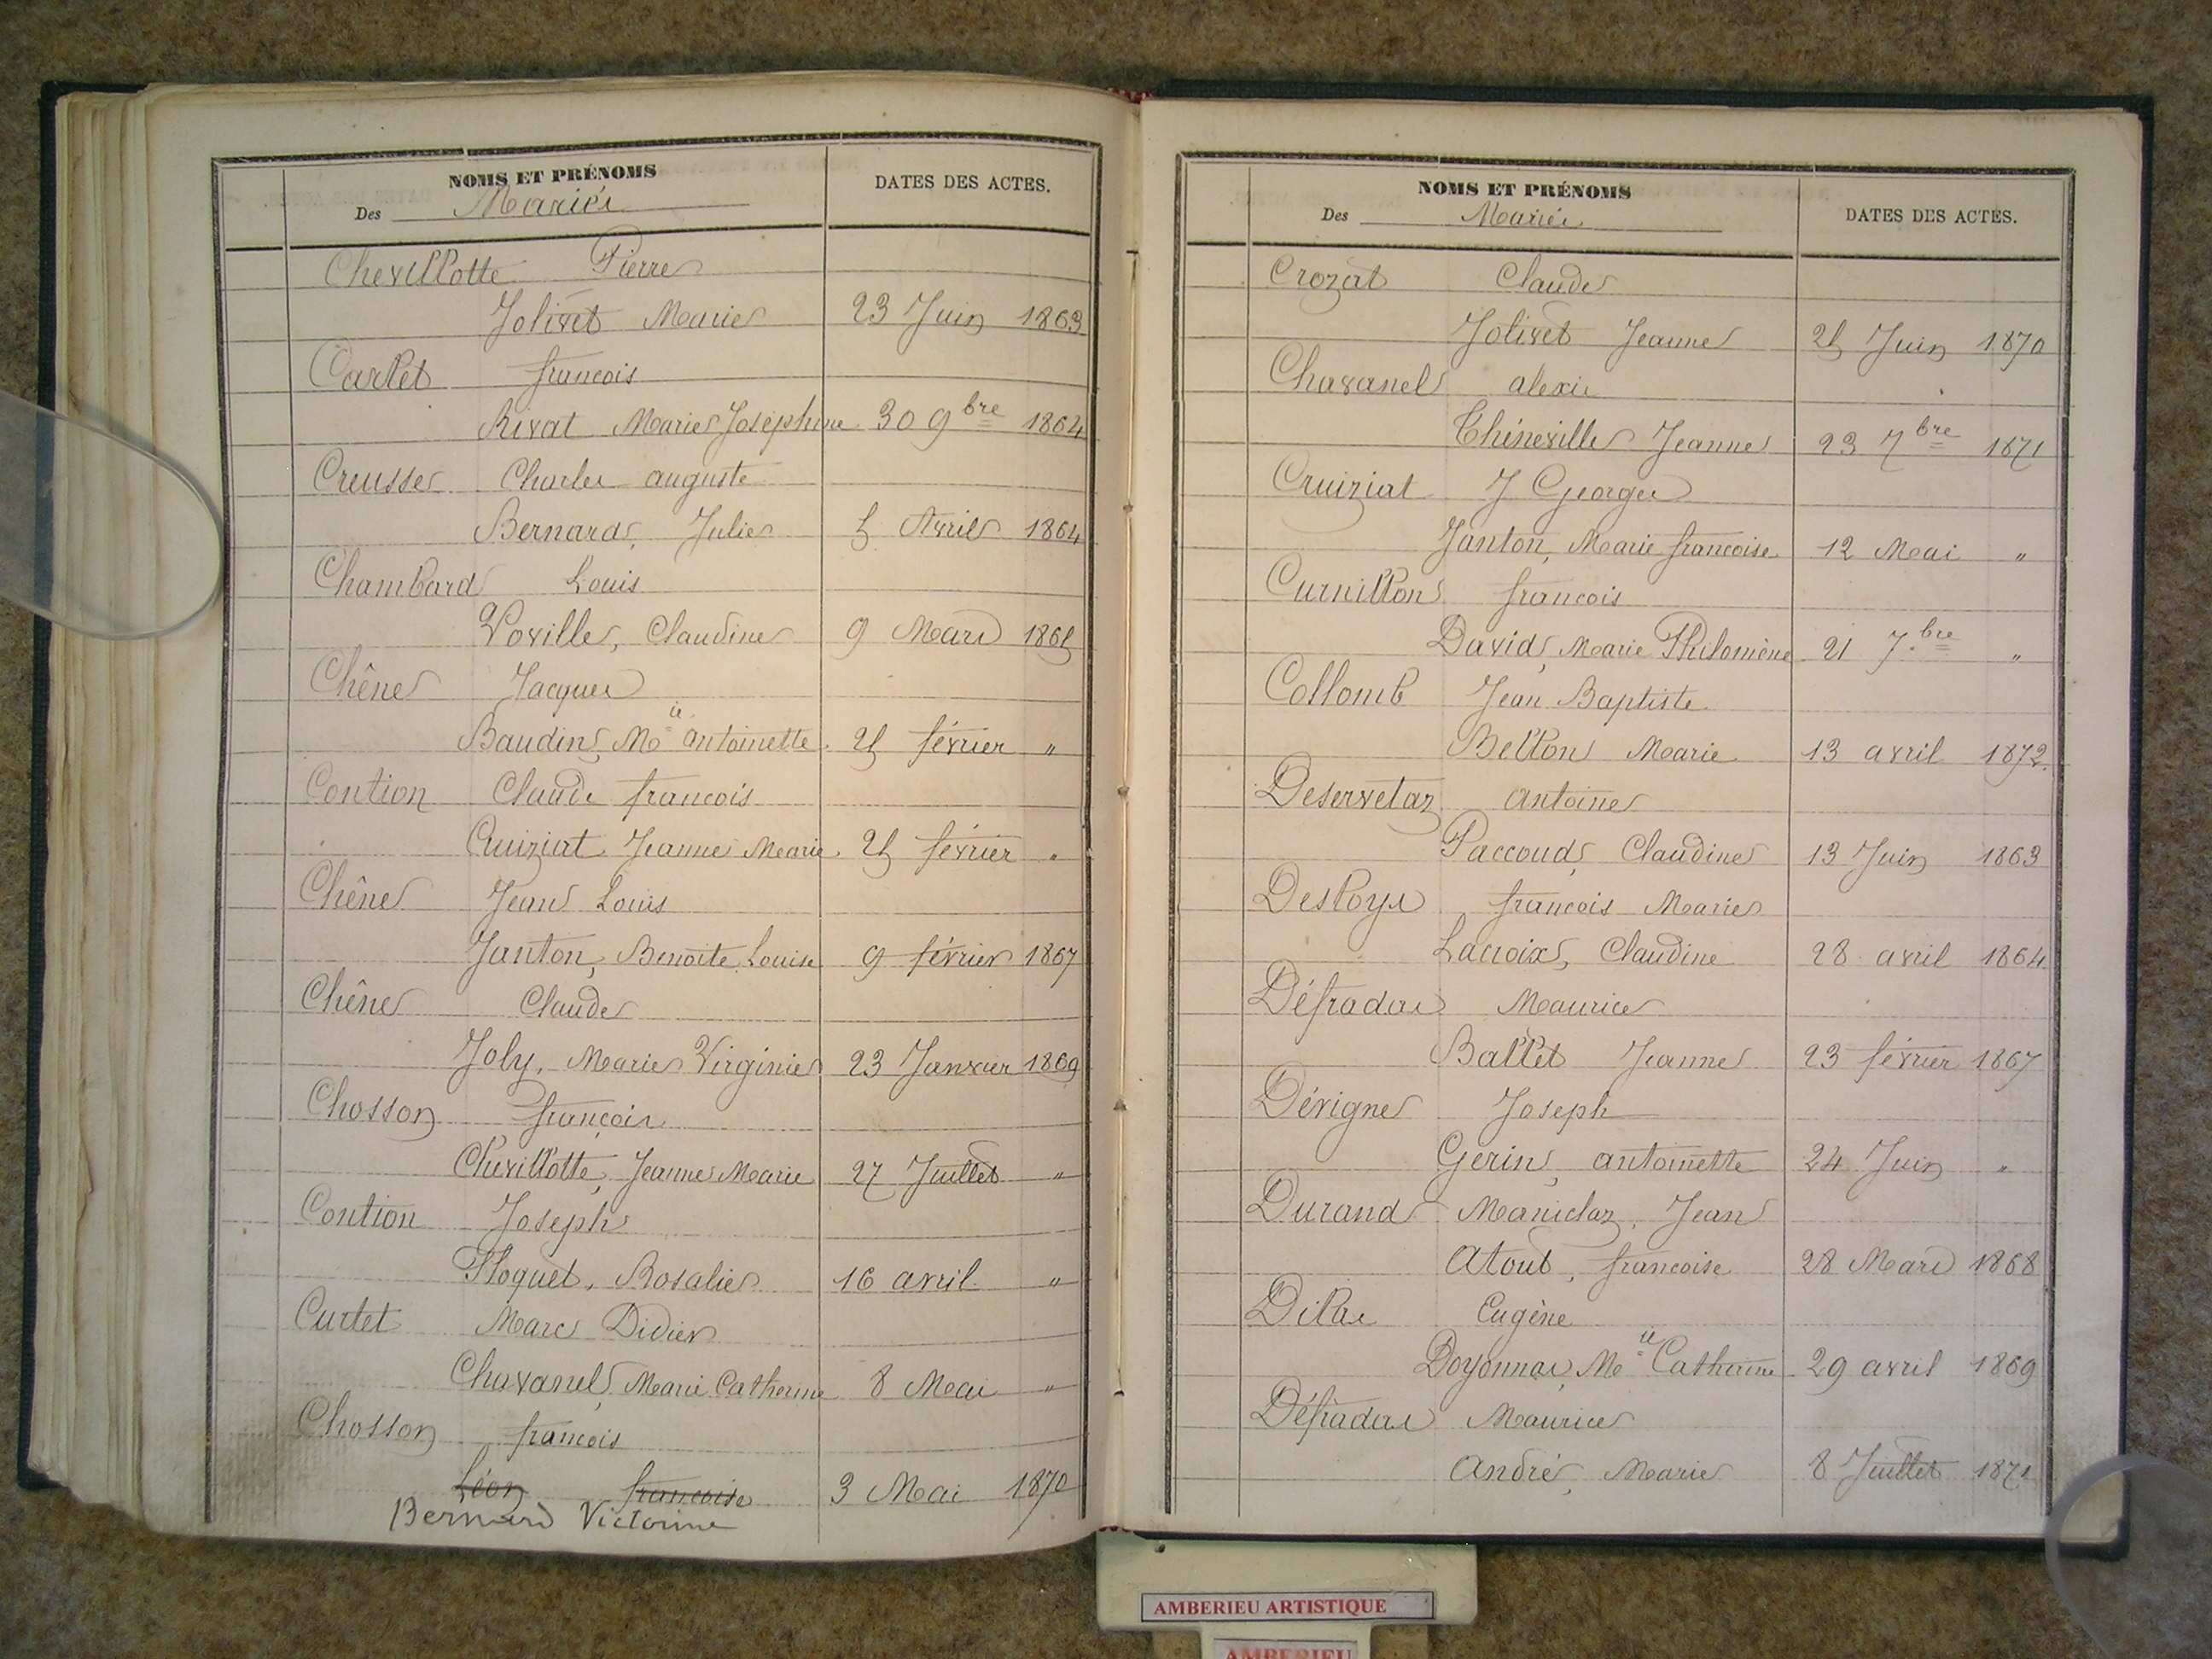 NOMS ET PRÉNOMS
Des Mariés
DATES DES ACTES.
Chevillotte Pierre
Jolivet Marie 23 Juin 1863
Carlet françois
Rivat Marie Joséphine 30 9bre 1864
Creusse Charles auguste
Bernard, Julie 5 Avril 1864
Chambard Louis
Voville, Claudine 9 Mars 1865
Chêne Jacques
Baudin, Mie antoinette 25 février "
Contion Claude françois
Cruiziat Jeanne Marie 25 février "
Chêne Jean Louis
Janton, Benoite Louise 9 février 1867
Chêne Claude
Joly, Marie Virginie 23 Janvier 1869
Chosson françois
Chevillotte, Jeanne Marie 27 Juillet "
Contion Joseph
Floquet, Rosalie 16 avril "
Curtet Marc Didier
Chavanel, Marie Catherine 8 Mai "
Chosson françois
Léon françoise 3 Mai 1870
Bernard Victorine
NOMS ET PRÉNOMS
Des Mariés
DATES DES ACTES.
Crozat Claude
Jolivet Jeanne 25 Juin 1870
Chavanel alexis
Théneville Jeanne 23 7bre 1871
Cruiziat J Georges
Janton, Marie françoise 12 Mai "
Curnillon françois
David, Marie Philomène 21 7bre "
Collomb Jean Baptiste
Bellon Marie 13 avril 1872.
Deservetaz antoine
Paccoud, Claudine 13 Juin 1863
Desloys françois Marie
Lacroix, Claudine 28 avril 1864
Défradas Maurice
Ballet Jeanne 23 février 1867
Dévigne Joseph
Gerin, antoinette 24 Juin "
Durand Maniclaz, Jean
Atout, françoise 28 Mars 1868
Dilas Eugène
Doyonnas, Mie Catherine 29 avril 1869
Défradas Maurice
André, Marie 8 Juillet 1871
AMBERIEU ARTISTIQUE
AMBERIEU